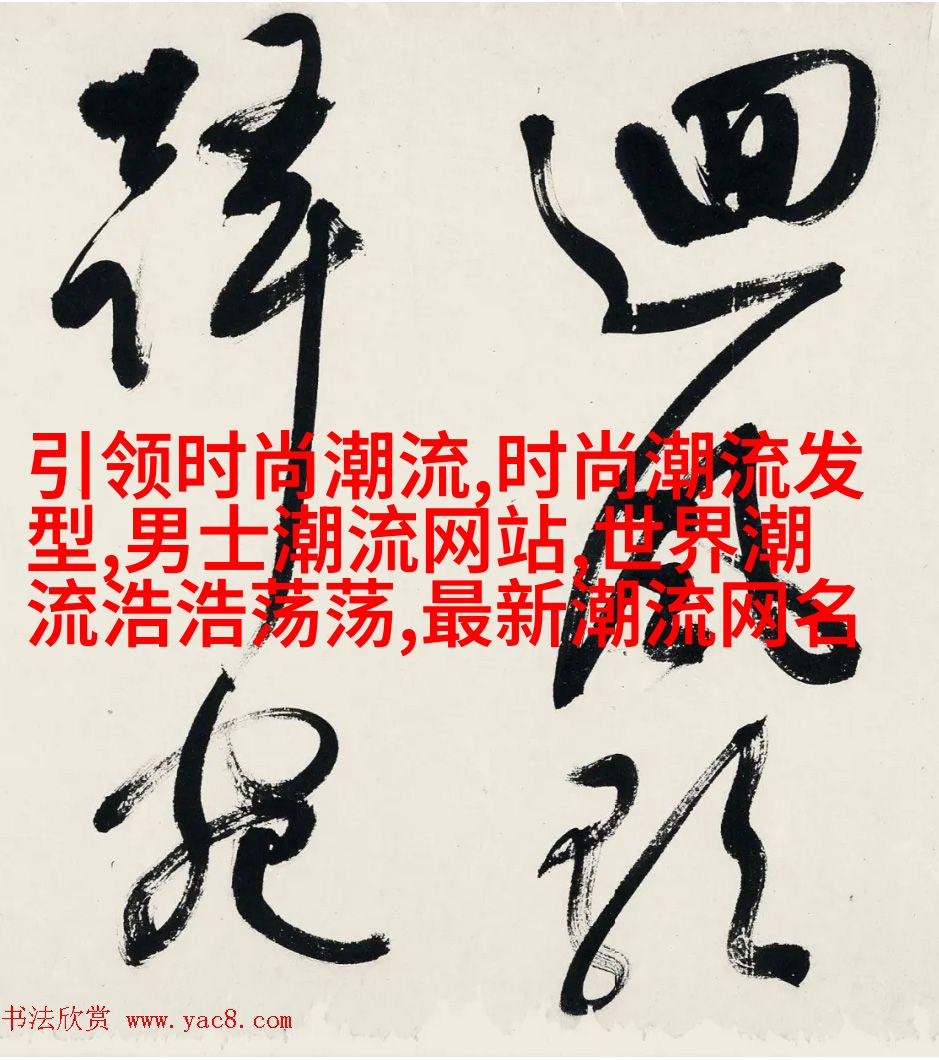 迴風
引领时尚潮流,时尚潮流发
型,男士潮流网站,世界潮
流浩浩荡荡,最新潮流网名
书法欣赏 www.yac8.com